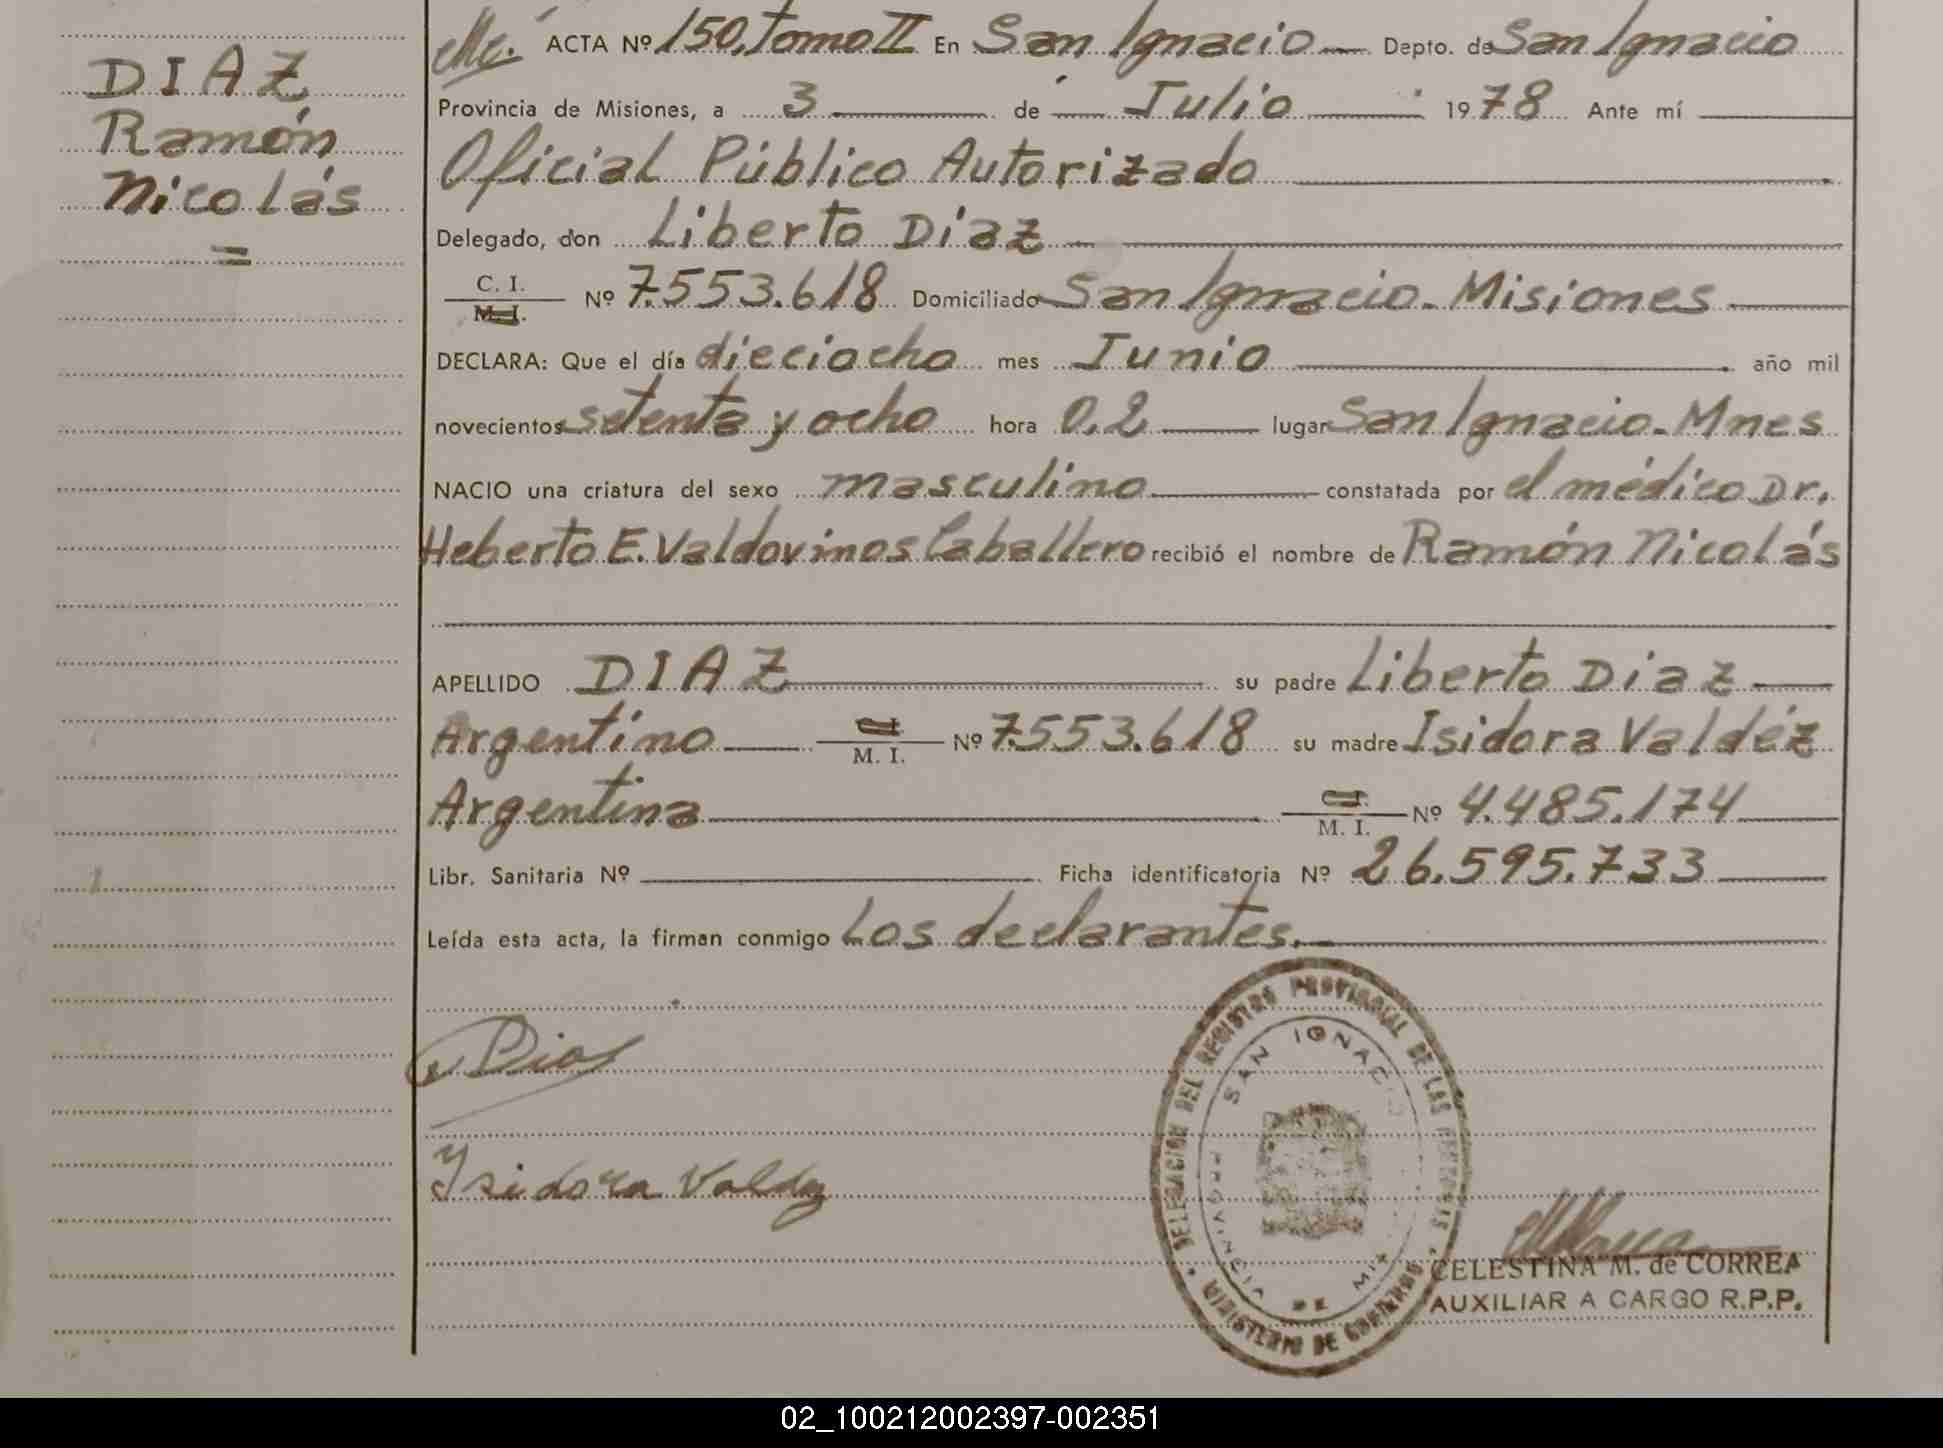 DIAZ
Ramón
Nicolás
ACTA Nº 150, Tomo II En San Ignacio Depto. de San Ignacio
Provincia de Misiones, a 3 de Julio 1978 Ante mí
Oficial Público Autorizado
Delegado, don Liberto Díaz
C. I.
M. I. Nº 7.553.618 Domiciliado San Ignacio - Misiones
DECLARA: Que el día dieciocho mes Junio año mil
novecientos setenta y ocho hora 0,2 lugar San Ignacio - Mnes
NACIO una criatura del sexo masculino constatada por el médico Dr.
Heberto E. Valdovinos Caballero recibió el nombre de Ramón Nicolás
APELLIDO DIAZ su padre Liberto Diaz
Argentino M. I. Nº 7.553.618 su madre Isidora Valdéz
Argentina C. I. M. I. Nº 4.485.174
Libr. Sanitaria Nº Ficha identificatoria Nº 26.595.733
Leída esta acta, la firman conmigo Los declarantes.
Isidora Valdez
DELEGACION DEL REGISTRO PROVINCIAL DE LAS PERSONAS
SAN IGNACIO
PROVINCIA DE MIS
MINISTERIO DE GOBIERNO
CELESTINA M. de CORREA
AUXILIAR A CARGO R.P.P.
02_100212002397-002351